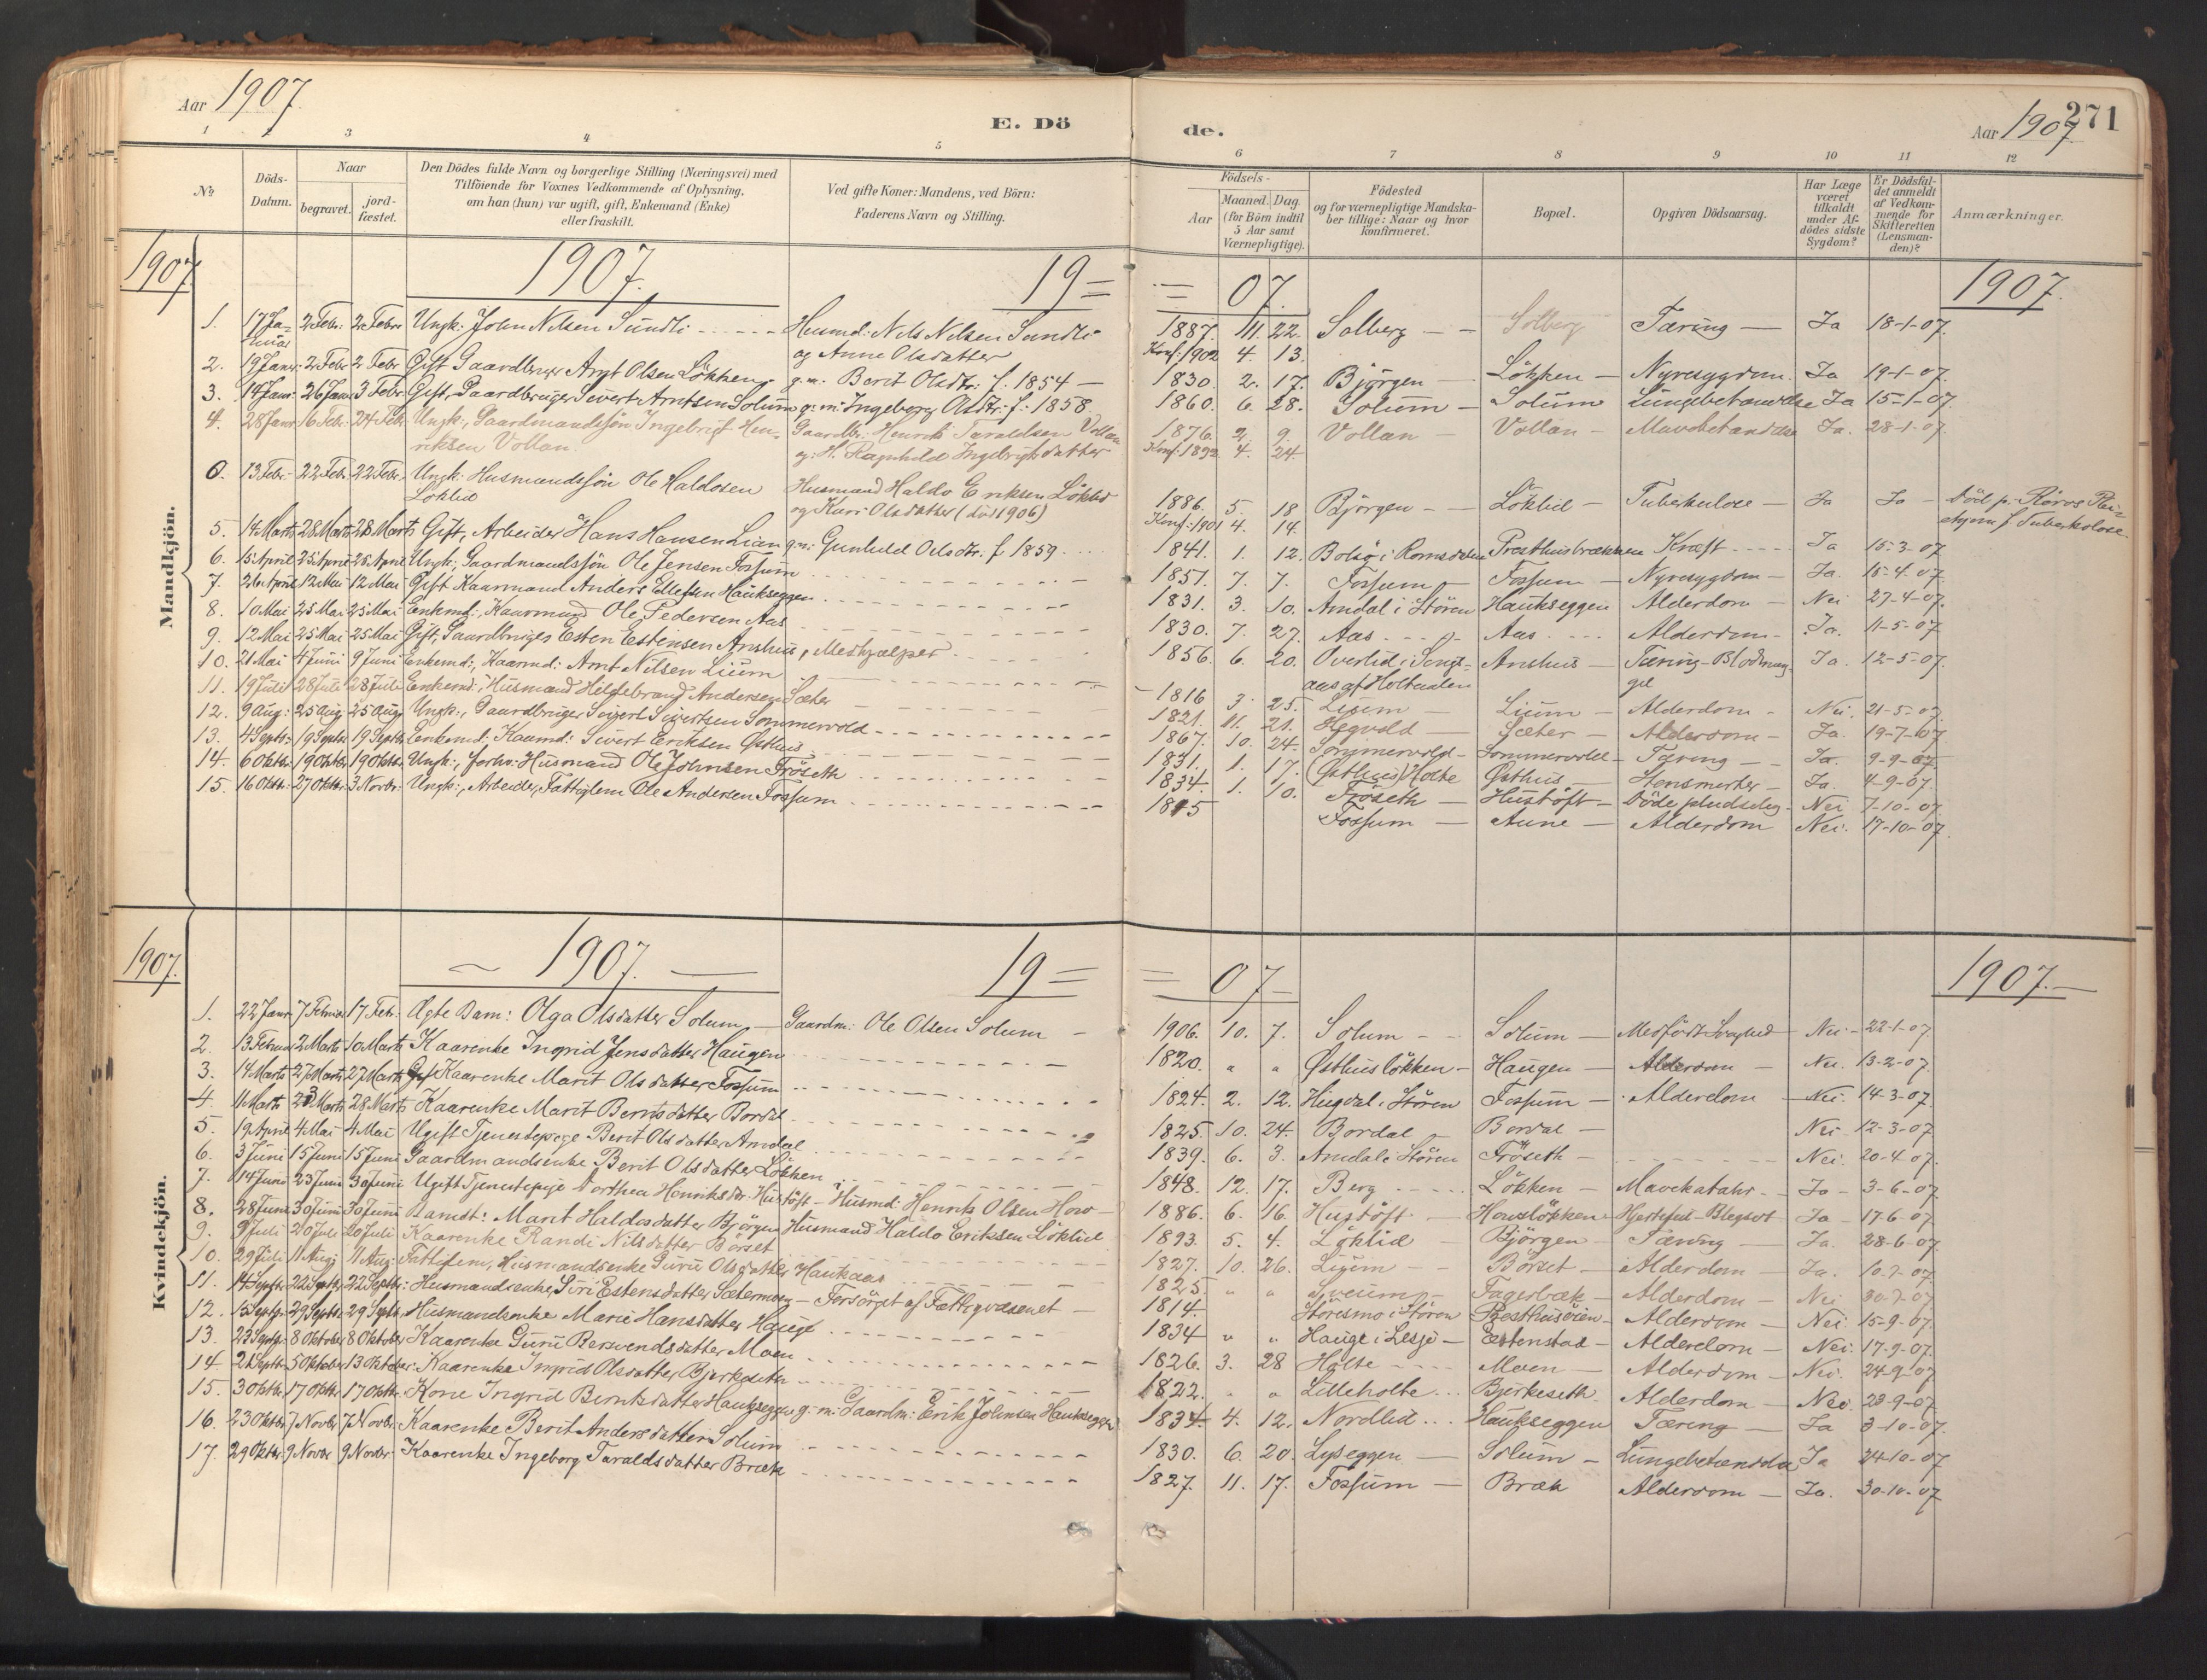 Aar 1907.
E. Dö
de.
Aar 1907
271
1 2 3 4 5 6 7 8 9 10 11 12
№
Döds-Datum.
Naar
begravet.
jord-fæstet.
Den Dödes fulde Navn og borgerlige Stilling (Næringsvei) med
Tilföiende for Voxnes Vedkommende af Oplysning,
om han (hun) var ugift, gift, Enkemand (Enke)
eller fraskilt.
Ved gifte Koner: Mandens, ved Börn:
Faderens Navn og Stilling.
Födsels-
Aar
Maaned. Dag.
(for Börn indtil
5 Aar samt
Værnepligtige).
Födested
og for værnepligtige Mandska-
ber tillige: Naar og hvor
konfirmeret.
Bopæl.
Opgiven Dödsaarsag.
Har Læge
været
tilkaldt
under Af-
dödes sidste
Sygdom?
Er Dödsfal-
det anmeldt
af Vedkom-
mende for
Skifteretten
(Lensman-
den)?
Anmærkninger.
Mandkjön.
1907. 1907. 19= =07. 1907.
1. 17 Ja- 2 Febr: 2 Febr Ungk: John Nilsen Sundli Husmd: Nils Nilsen Sundli 1887. 11. 22. Solberg Solberg Tæring Ja 18-1-07.
nuar og Anne Olsdatter Konf: 1902 4. 13.
2. 19 Janr: 2 Febr 2 Febr Gift Gaardbruger Arnt Olsen Lökken g. m. Berit Olsdtr: f. 1854 1830. 2. 17. Björgen Lökken Nyresygdom. Ja 19-1-07.
3. 14 Janr: 26 Janr 3 Febr Gift, Gaardbruger Sivert Arntsen Solum g: m: Ingeborg Olsdtr: f. 1858 1860. 6. 28. Solum Solum Lungebetændelse Ja 15-1-07.
4. 28 Janr 16 Febr: 24 Febr Ungk:, Gaardmandssön Ingebrigt Hen- Gaardbr: Henrik Taraldsen Vollan 1876. 2. 9. Vollan Vollan Mavebetændelse Ja. 28-1-07.
riksen Vollan. og H. Ragnhild Ingebrigtsdatter Konf: 1892 4. 24.
0. 13 Febr: 22 Febr 22 Febr. Ungk: Husmandssön Ole Haldosen Husmand Haldo Eriksen Löklid 1886. 5. 18 Björgen Löklid Tuberkulose Ja Ja Död p. Röros
Löklid og Kari Olsdatter (död 1906) Konf: 1901 4. 14. f. Tuberkolose
5. 14 Marts 28 Marts 28 Marts Gift, Arbeider Hans Hansen Lian g. m: Gunhild Olsdtr: f. 1859 1841. 1. 12. Bolsö i Romsdalen Presthusbrækken Kræft Ja 15-3-07.
6. 15 April 25 April 25 April Ungk:, Gaardmandssön Ole Jensen Fossum 1851. 7. 7. Fossum Fossum Nyresygdom Ja. 15-4-07.
7. 26 April 12 Mai 12 Mai Gift Kaarmand Anders Ellefsen Haukseggen 1831. 3. 10. Amdal i Stören Haukseggen Alderdom Nei 27-4-07.
8. 10 Mai 25 Mai 25 Mai Enkemd:, Kaarmand Ole Pedersen Aas 1830. 7. 27. Aas Aas Alderdom Ja. 11-5-07
9. 12 Mai 25 Mai 25 Mai Gift, Gaardbruger Esten Estensen Anshus, Medhjælper 1856. 6. 20. Overlid i Sings- Anshus Tæring-Blodman- Ja. 12-5-07
aas af Holtaalen gel
10. 21 Mai 4 Juni 9 Juni Enkemd:, Kaarmd: Arnt Nilsen Lium 1816 3. 25. Lium Lium Alderdom Nei. 21-5-07.
11. 19 Juli 28 Juli 28 Juli Enkemd:, Husmand Hildebrand Andersen Sæter 1821. 11. 21. Hegvold Sæter Alderdom Ja. 19-7-07
12. 9 Aug: 25 Aug 25 Aug Ungk:, Gaardbruger Sivert Sivertsen Sommervold 1867. 10. 24. Sommervold Sommervold Tæring Ja. 9-9-07
13. 4 Septr: 19 Septr 19 Septr Enkemd: Kaarmd: Sivert Eriksen Østhus 1831. 1. 17. (Østhus) Holte Østhus Stensmerter Ja. 4-9-07.
14. 6 Oktbr 19 Oktbr 19 Oktbr. Ungk:, forhv: Husmand Ole Johnsen Fröseth 1834. 1. 10. Fröseth Hustöft Döde pludselig Nei 7-10-07.
15. 16 Oktbr: 27 Oktbr: 3 Novbr: Ungk:, Arbeider, Fattiglem Ole Andersen Fossum 1845 Fossum Aune Alderdom Nei. 17-10-07.
Kvindekjön.
1907. 1907. 19= =07 1907.
1. 22 Janr 7 Februar 17 Febr. Ægte Barn: Olga Olsdatter Solum Gaardm: Ole Olsen Solum 1906. 10. 7. Solum Solum Medfödt Svaghed Nei 22-1-07.
2. 13 Februar 2 Marts 10 Marts Kaarenke Ingrid Jensdatter Haugen 1820. " " Østhuslökken Haugen Alderdom Nei. 13-2-07.
3. 14 Marts 27 Marts 27 Marts Kaarenke Marit Olsdatter Fossum 1824. 2. 12. Hugdal i Stören Fossum Alderdom Nei. 14-3-07.
4. 11 Marts 23 Marts 28 Marts Kaarenke Marit Berntsdatter Bordal 1825. 10. 24. Bordal Bordal Nei 12-3-07
5. 19 April 4 Mai 4 Mai Ugift Tjenestepige Berit Olsdatter Amdal 1839. 6. 3. Amdal i Stören Fröseth Nei. 20-4-07.
6. 3 Juni 15 Juni 15 Juni Gaardmandsenke Berit Olsdatter Lökken 1848. 12. 17. Berg Lökken Mavekatahr Ja 3-6-07.
7. 14 Juni 23 Juni 30 Juni Ugift Tjenestepige Dorthea Henriksdtr. Hustöft Husmd: Henrik Olsen How- 1886. 6. 16. Hustöft Howslökken Hjertefeil-Blegsot Ja 17-6-07
8. 28 Juni 30 Juni 30 Juni Marit Haldosdatter Björgen Husmand Haldo Eriksen Löklid 1893. 5. 4. Löklid Björgen Tæring Ja. 28-6-07.
9. 9 Juli 20 Juli 20 Juli Kaarenke Randi Nilsdatter Börset 1827. 10. 26. Lium Börset Alderdom Ja. 10-7-07.
10. 29 Juli 11 Aug: 11 Aug: Fattiglem, Husmandsenke Guru Olsdatter Haukaas 1825. " " Sveium Fagerbæk Alderdom Nei 30-7-07
11. 14 Septr: 22 Septr 22 Septbr: Husmandsenke Siri Estensdatter Sætermoen Forsörget af Fattigvæsenet 1814. Störesmo i Stören Presthusöien Alderdom Nei: 15-9-07.
12. 15 Septr. 29 Septr. 29 Septr. Husmandsenke Marie Hansdatter Hauge 1834 " " Hauge i Lesje Estenstad Alderdom Nei: 17-9-07.
13. 23 Septr 8 Oktober 8 Oktober Kaarenke Guru Bersvendsdatter Moen 1826. 3. 28 Holte Moen Alderdom Nei. 24-9-07
14. 21 Septr. 5 Oktober 13 Oktober: Kaarenke Ingrid Olsdatter, Bjerkeseth 1822. " " Lilleholte Bjerkeseth Alderdom Nei. 23-9-07
15. 3 Oktbr. 17 Oktbr. 17 Oktbr. Kone Ingrid Berntsdatter Haukseggen g: m: Gaardm: Erik Johnsen Haukseggen 1834 4. 12. Nordlid Haukseggen Tæring Ja 3-10-07.
16. 23 Oktbr 7 Novbr 7 Novbr. Kaarenke Berit Andersdatter Solum 1830. 6. 20. Lyseggen Solum Lungebetændelse Ja 24-10-07
17. 29 Oktbr. 9 Novbr 9 Novbr. Kaarenke Ingeborg Taraldsdatter Bræk 1827. 11. 17. Fossum Bræk Alderdom Ja. 30-10-07